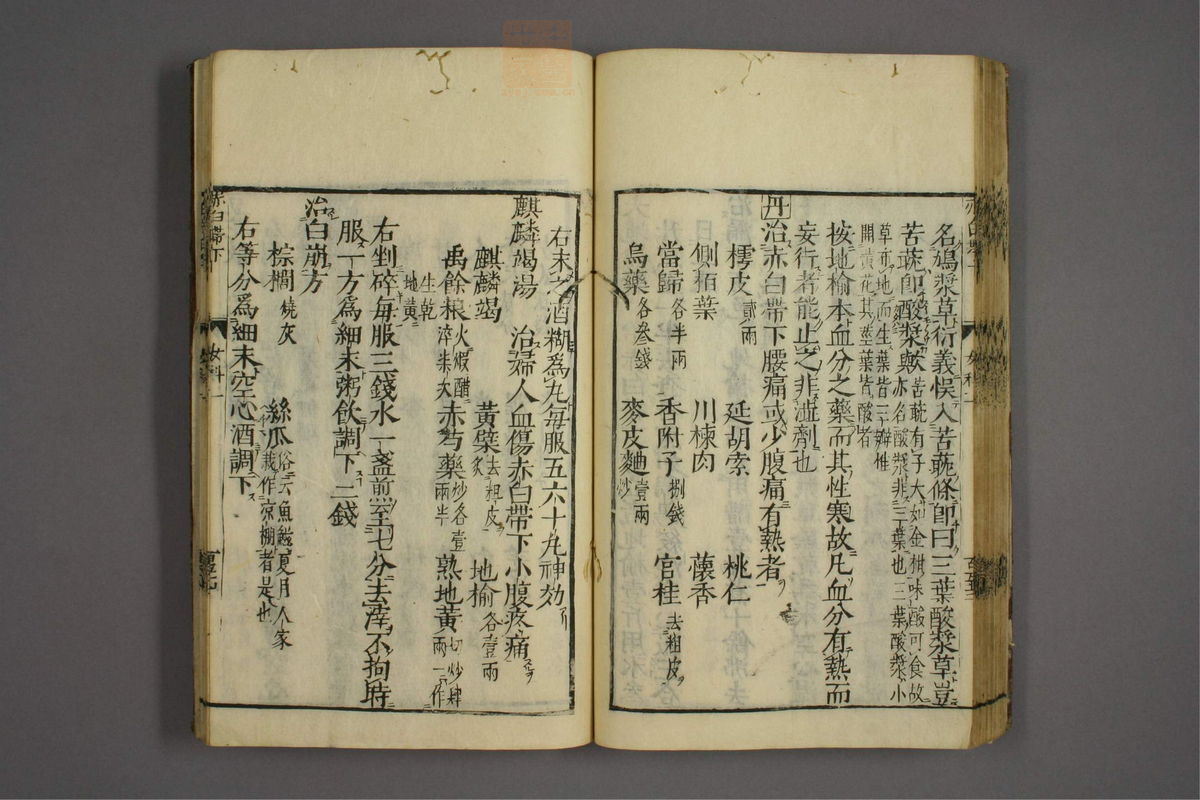 名鳩漿草衍義悮入苦蘵條即曰三葉酸漿草豈
苦蘵即酸漿歟苦蘵有子大如金柑味酸可食故
亦名酸漿非三葉也三葉酸漿小
草布地而生葉皆三瓣惟
開黃花其莖葉皆酸者
按地榆本血分之藥而其性寒故凡血分有熱而
妄行者能止之非澁劑也
丹治赤白帶下腰痛或少腹痛有熱者
樗皮貳兩 延胡索 桃仁
側栢葉 川楝肉 懷香
當歸各半兩 香附子捌錢 官桂去粗皮
烏藥各叄錢 麥皮麯壹兩炒
右末之酒糊爲丸每服五六十丸神効
麒麟竭湯 治婦人血傷赤白帶下小腹疼痛
麒麟竭 黃蘗去粗皮炙 地榆各壹兩
禹餘粮火煆醋淬柒次 赤芍藥炒各壹兩半 熟地黃切炒肆兩一作
生乾地黃
右剉碎每服三錢水一盞煎至七分去滓不拘時
服一方爲細末粥飲調下二錢
治白崩方
棕櫚燒灰 絲瓜俗云魚鰦夏月人家栽作凉棚者是也
右等分爲細末空心酒調下
赤白帶下
女科一